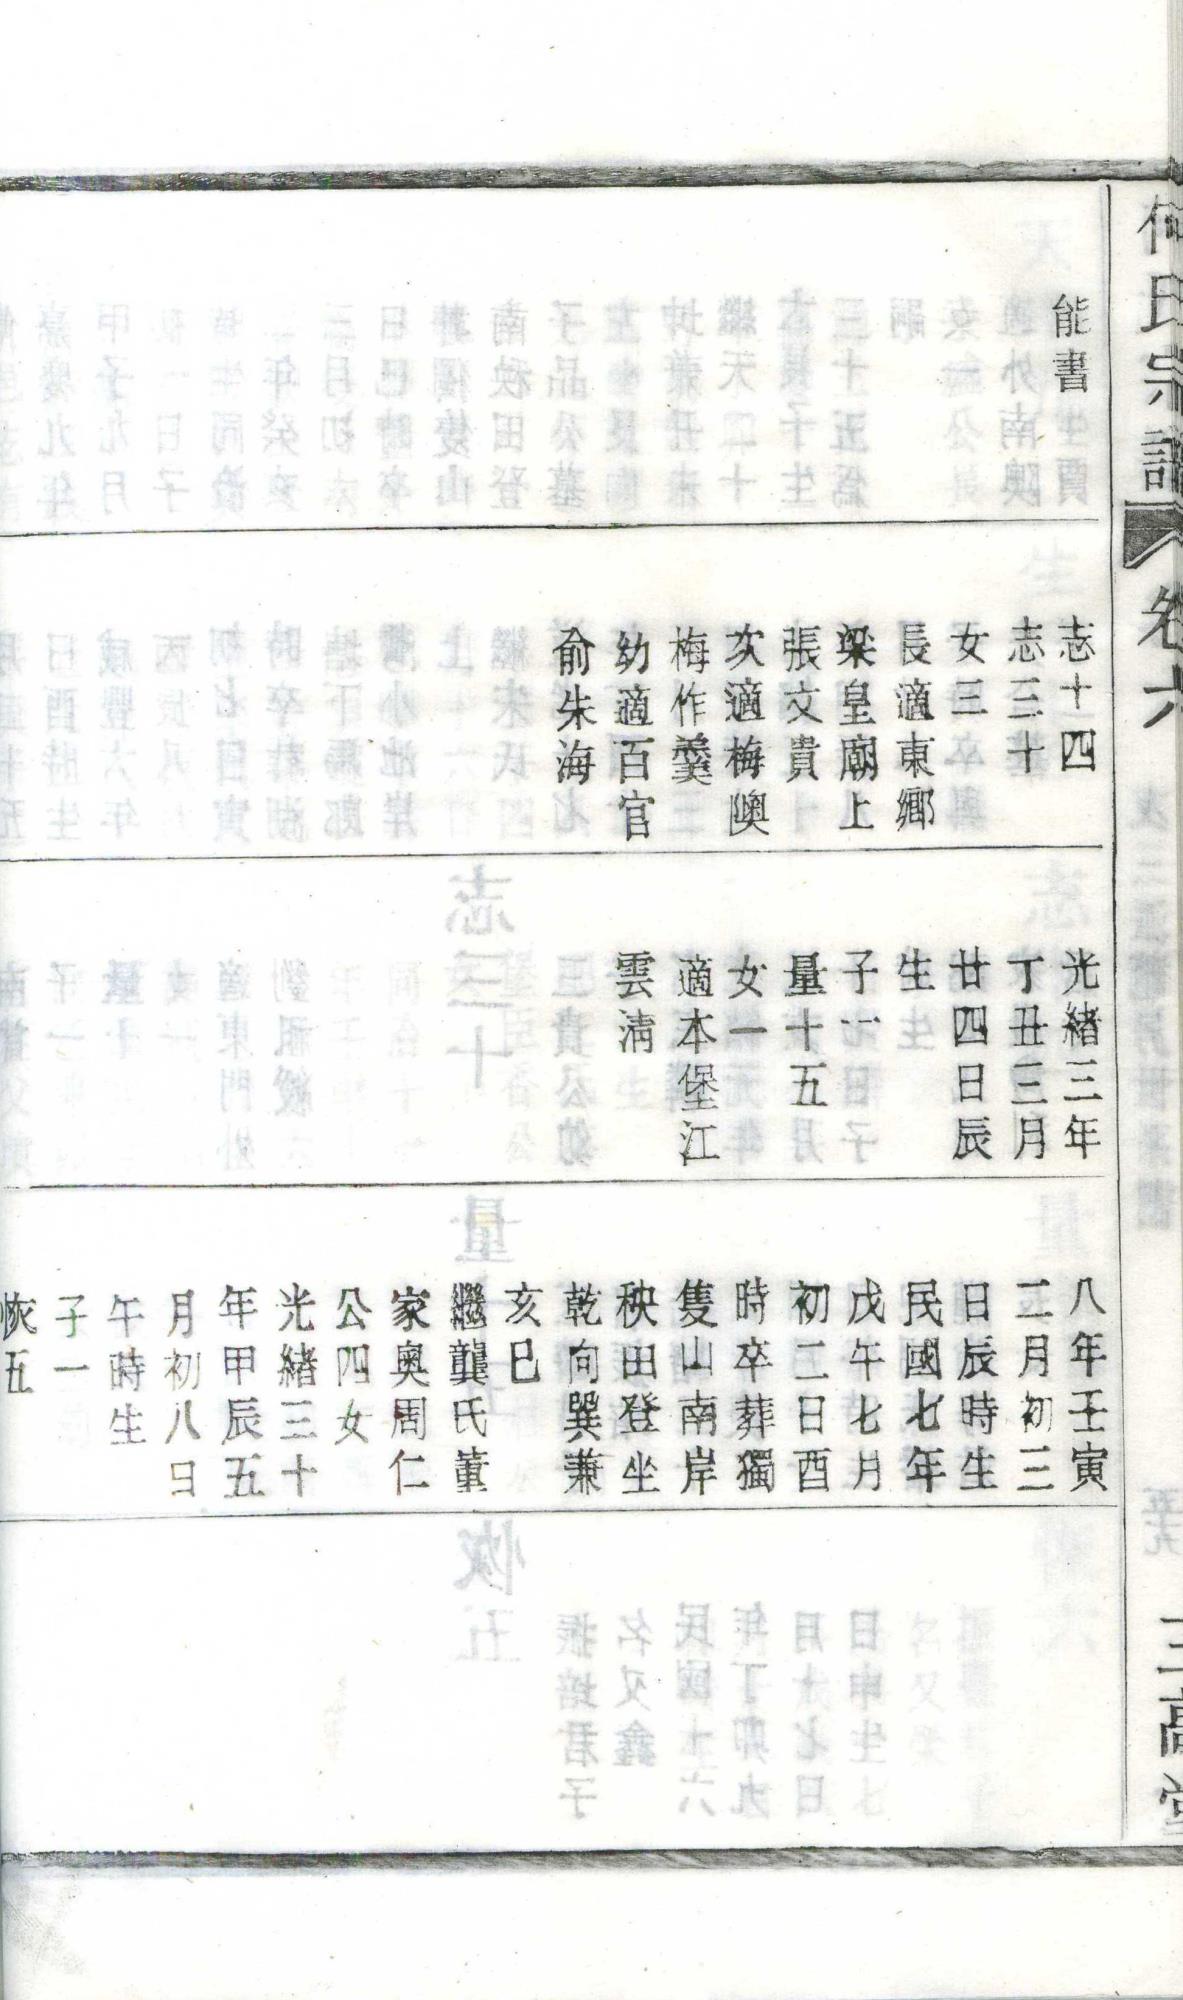 何氏宗譜
卷六
三高堂
能書
志十四
志三十
女三
長適東鄉
梁皇廟上
張文貴
次適梅隩
梅作羹
幼適百官
俞朱海
光緒三年
丁丑三月
廿四日辰
生
子一
量十五
女一
適本堡江
雲淸
八年壬寅
二月初三
日辰時生
民國七年
戊午七月
初二日酉
時卒葬獨
隻山南岸
秧田登坐
乾向巽兼
亥巳
繼龔氏董
家奥周仁
公四女
光緒三十
年甲辰五
月初八日
午時生
子一
恢五